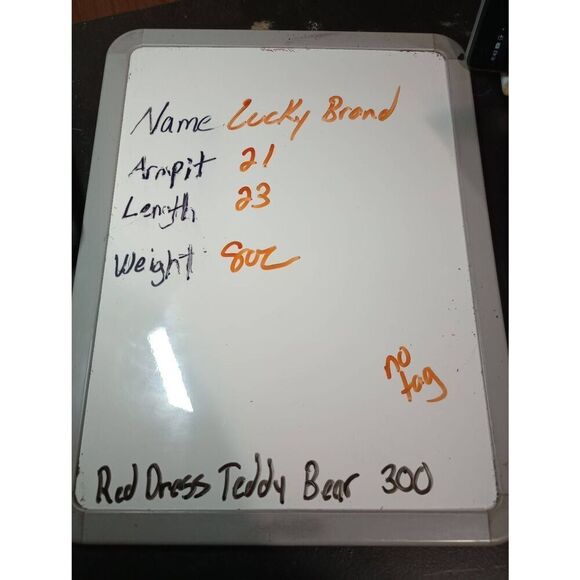 Name Lucky Brand
Armpit 21
Length 23
Weight 8oz
no
tag
Red Dress Teddy Bear 300